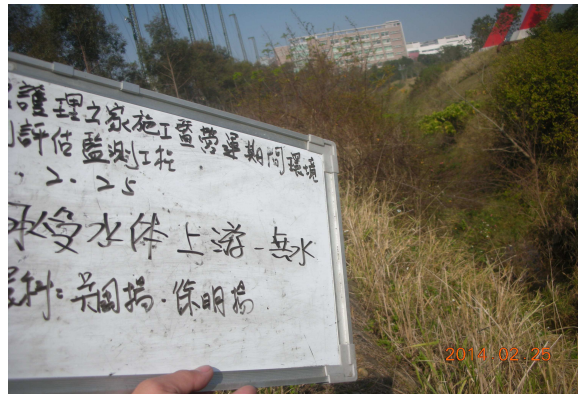 護理之家施工暨營運期間環境
評估監測工程
.2.25
承受水体上游-無水
科:吳國揚.徐明揚
2014.02.25